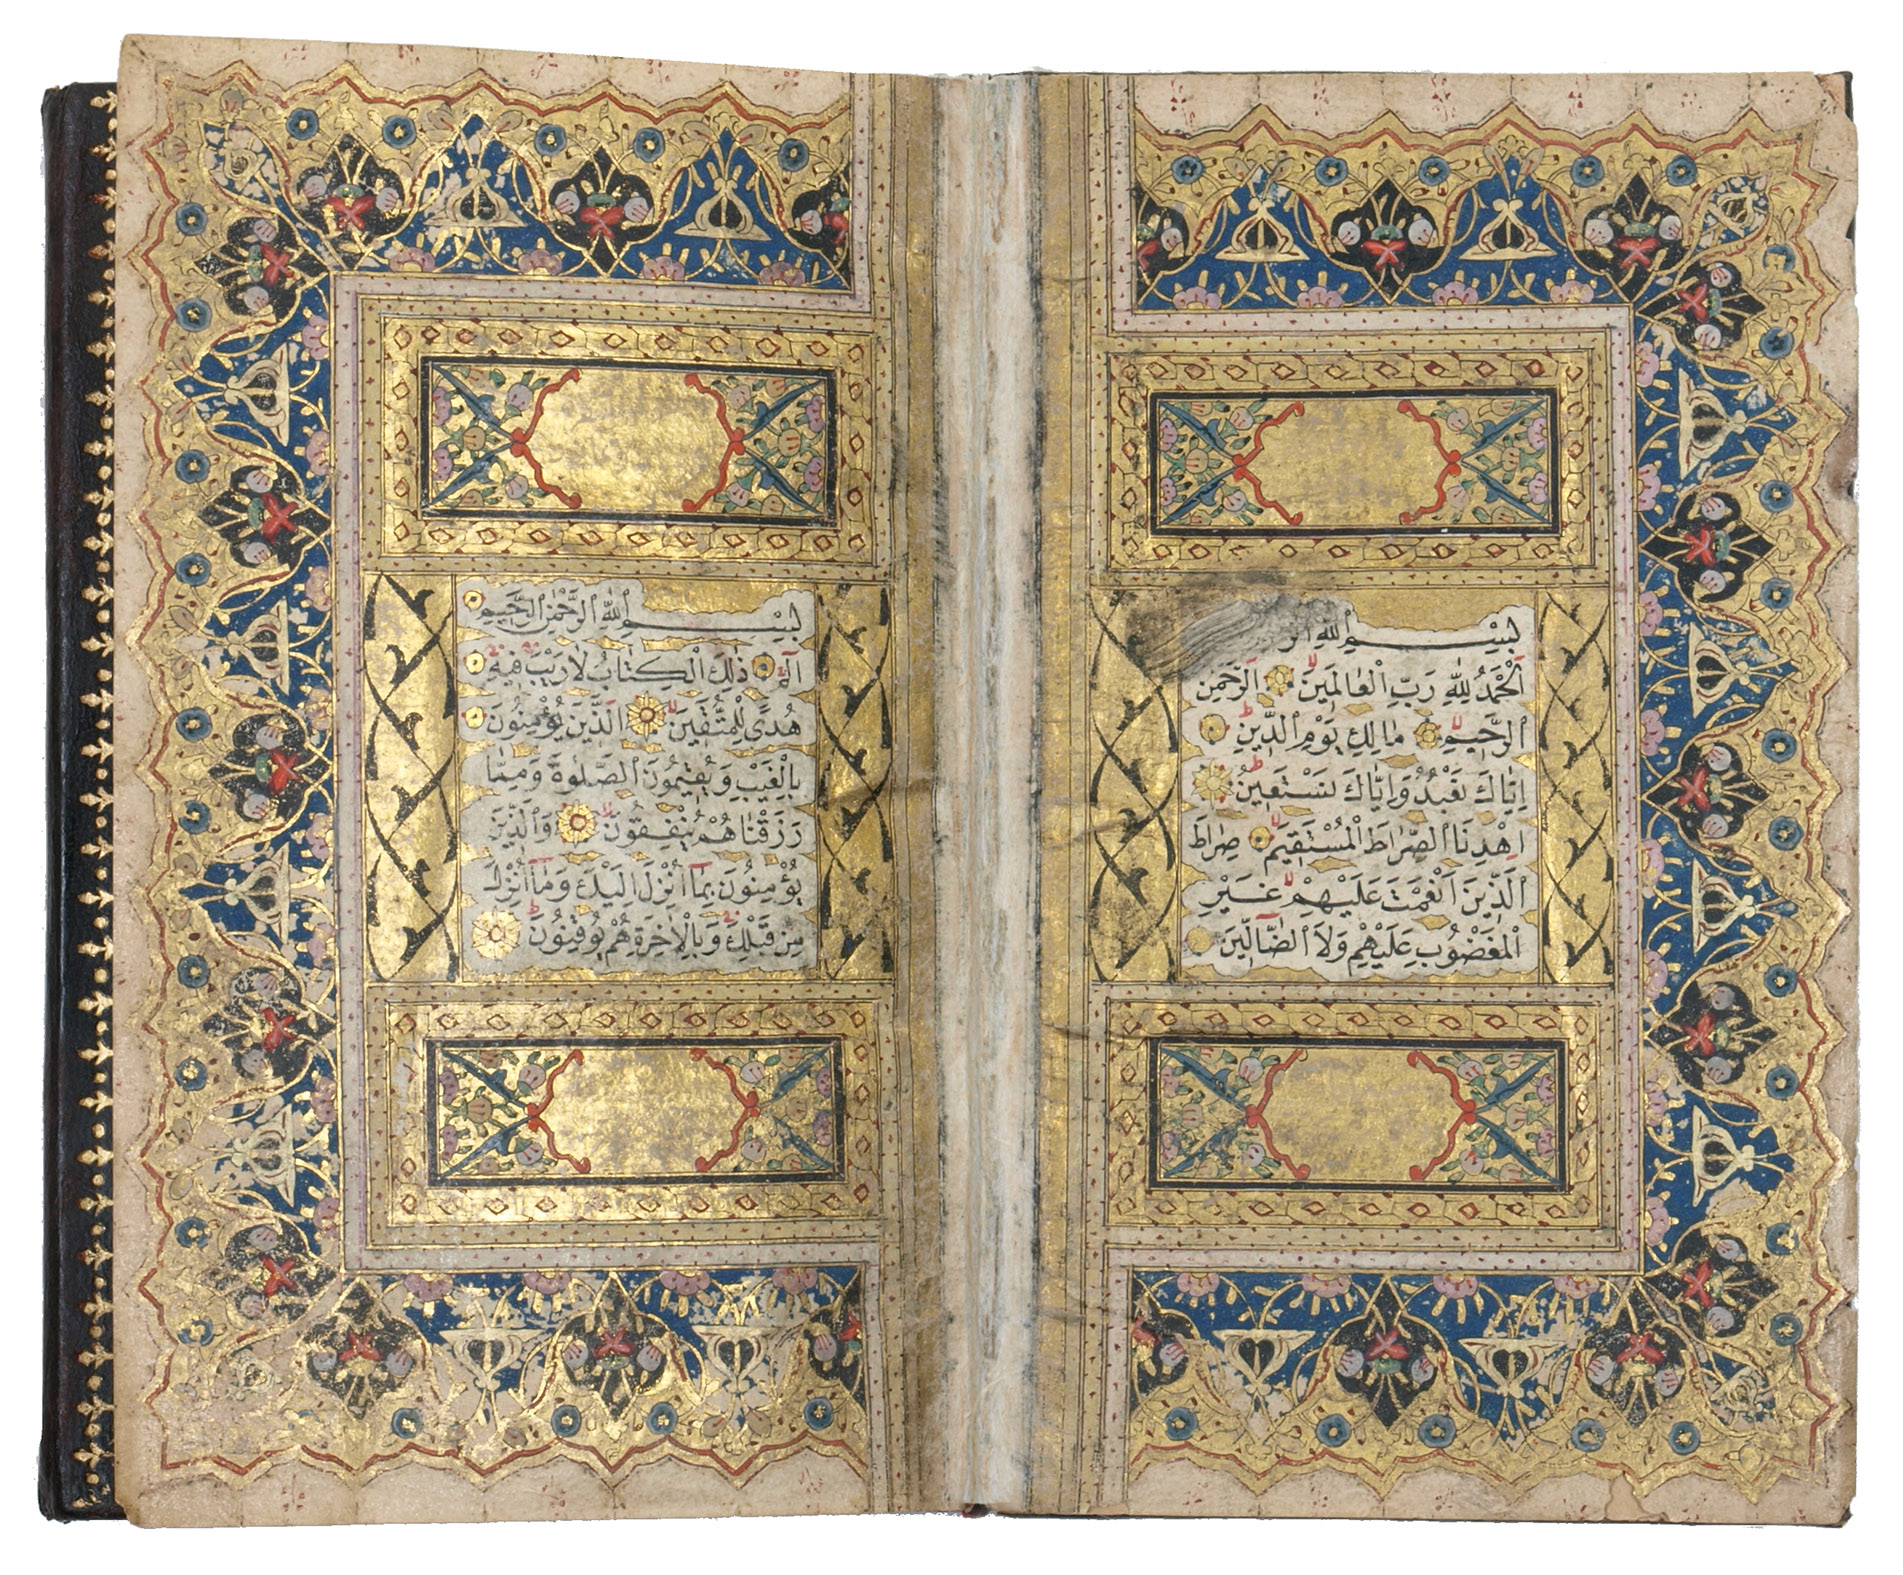 بِسْمِ اللهِ
اَلْحَمْدُ لِلّٰهِ رَبِّ الْعَالَمِينَ اَلرَّحْمٰنِ
الرَّحِيمِ مَالِكِ يَوْمِ الدِّينِ
اِيَّاكَ نَعْبُدُ وَاِيَّاكَ نَسْتَعِينُ
اِهْدِنَا الصِّرَاطَ الْمُسْتَقِيمَ صِرَاطَ
الَّذِينَ اَنْعَمْتَ عَلَيْهِمْ غَيْرِ
الْمَغْضُوبِ عَلَيْهِمْ وَلَا الضَّالِّينَ
بِسْمِ اللهِ الرَّحْمٰنِ الرَّحِيمِ
الٓمٓ ذٰلِكَ الْكِتَابُ لَا رَيْبَ فِيهِ
هُدًى لِلْمُتَّقِينَ الَّذِينَ يُؤْمِنُونَ
بِالْغَيْبِ وَيُقِيمُونَ الصَّلٰوةَ وَمِمَّا
رَزَقْنَاهُمْ يُنْفِقُونَ وَالَّذِينَ
يُؤْمِنُونَ بِمَٓا اُنْزِلَ اِلَيْكَ وَمَٓا اُنْزِلَ
مِنْ قَبْلِكَ وَبِالْاٰخِرَةِ هُمْ يُوقِنُونَ